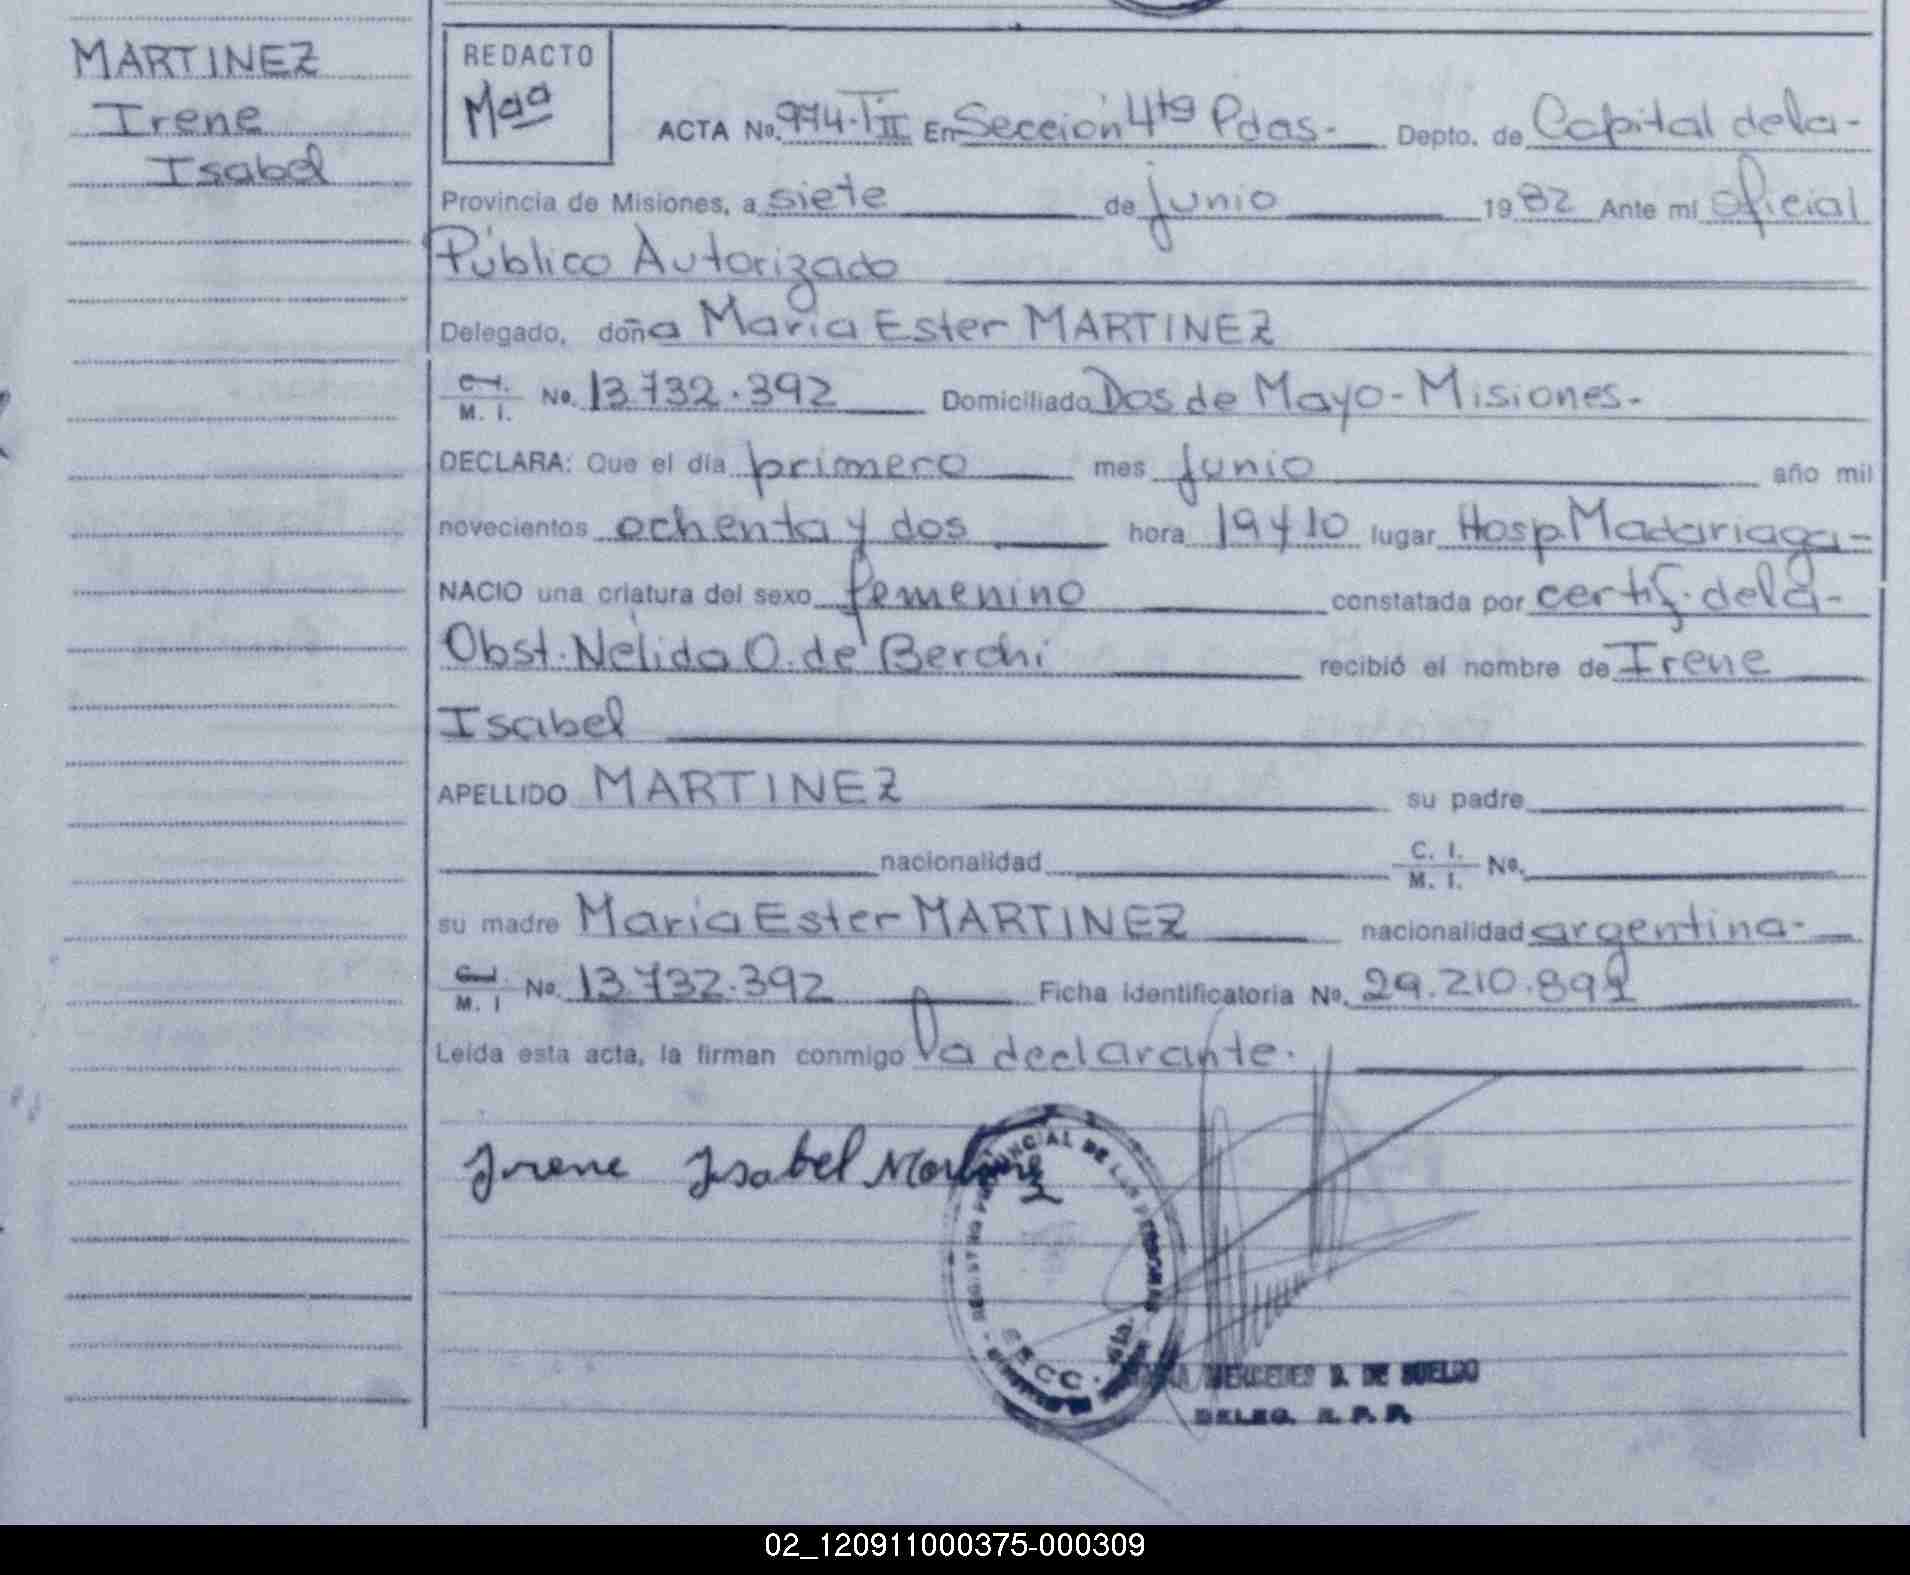 MARTINEZ
Irene
Isabel
REDACTO
Mªª
ACTA No. 974-TII En Sección 4ta Pdas.- Depto. de Capital de la-
Provincia de Misiones, a siete de junio 1982 Ante mi oficial
Público Autorizado
Delegado, doña María Ester MARTINEZ
C.I. M. I. No. 13.732.392 Domiciliado Dos de Mayo - Misiones.-
DECLARA: Que el día primero mes junio año mil
novecientos ochenta y dos hora 19 y 10 lugar Hosp. Madariaga-
NACIO una criatura del sexo femenino constatada por certif. de la-
Obst. Nélida O. de Berchi recibió el nombre de Irene
Isabel
APELLIDO MARTINEZ su padre
nacionalidad C. I. M. I. No.
su madre María Ester MARTINEZ nacionalidad argentina.-
C.I. M. I No. 13.732.392 Ficha identificatoria No. 29.210.891
Leída esta acta, la firman conmigo la declarante.
Irene Isabel Martinez
REGISTRO PROVINCIAL DE LAS PERSONAS
SECC. 4ta.
MERCEDES B. DE SUELDO
DELEG. R. P. P.
02_120911000375-000309